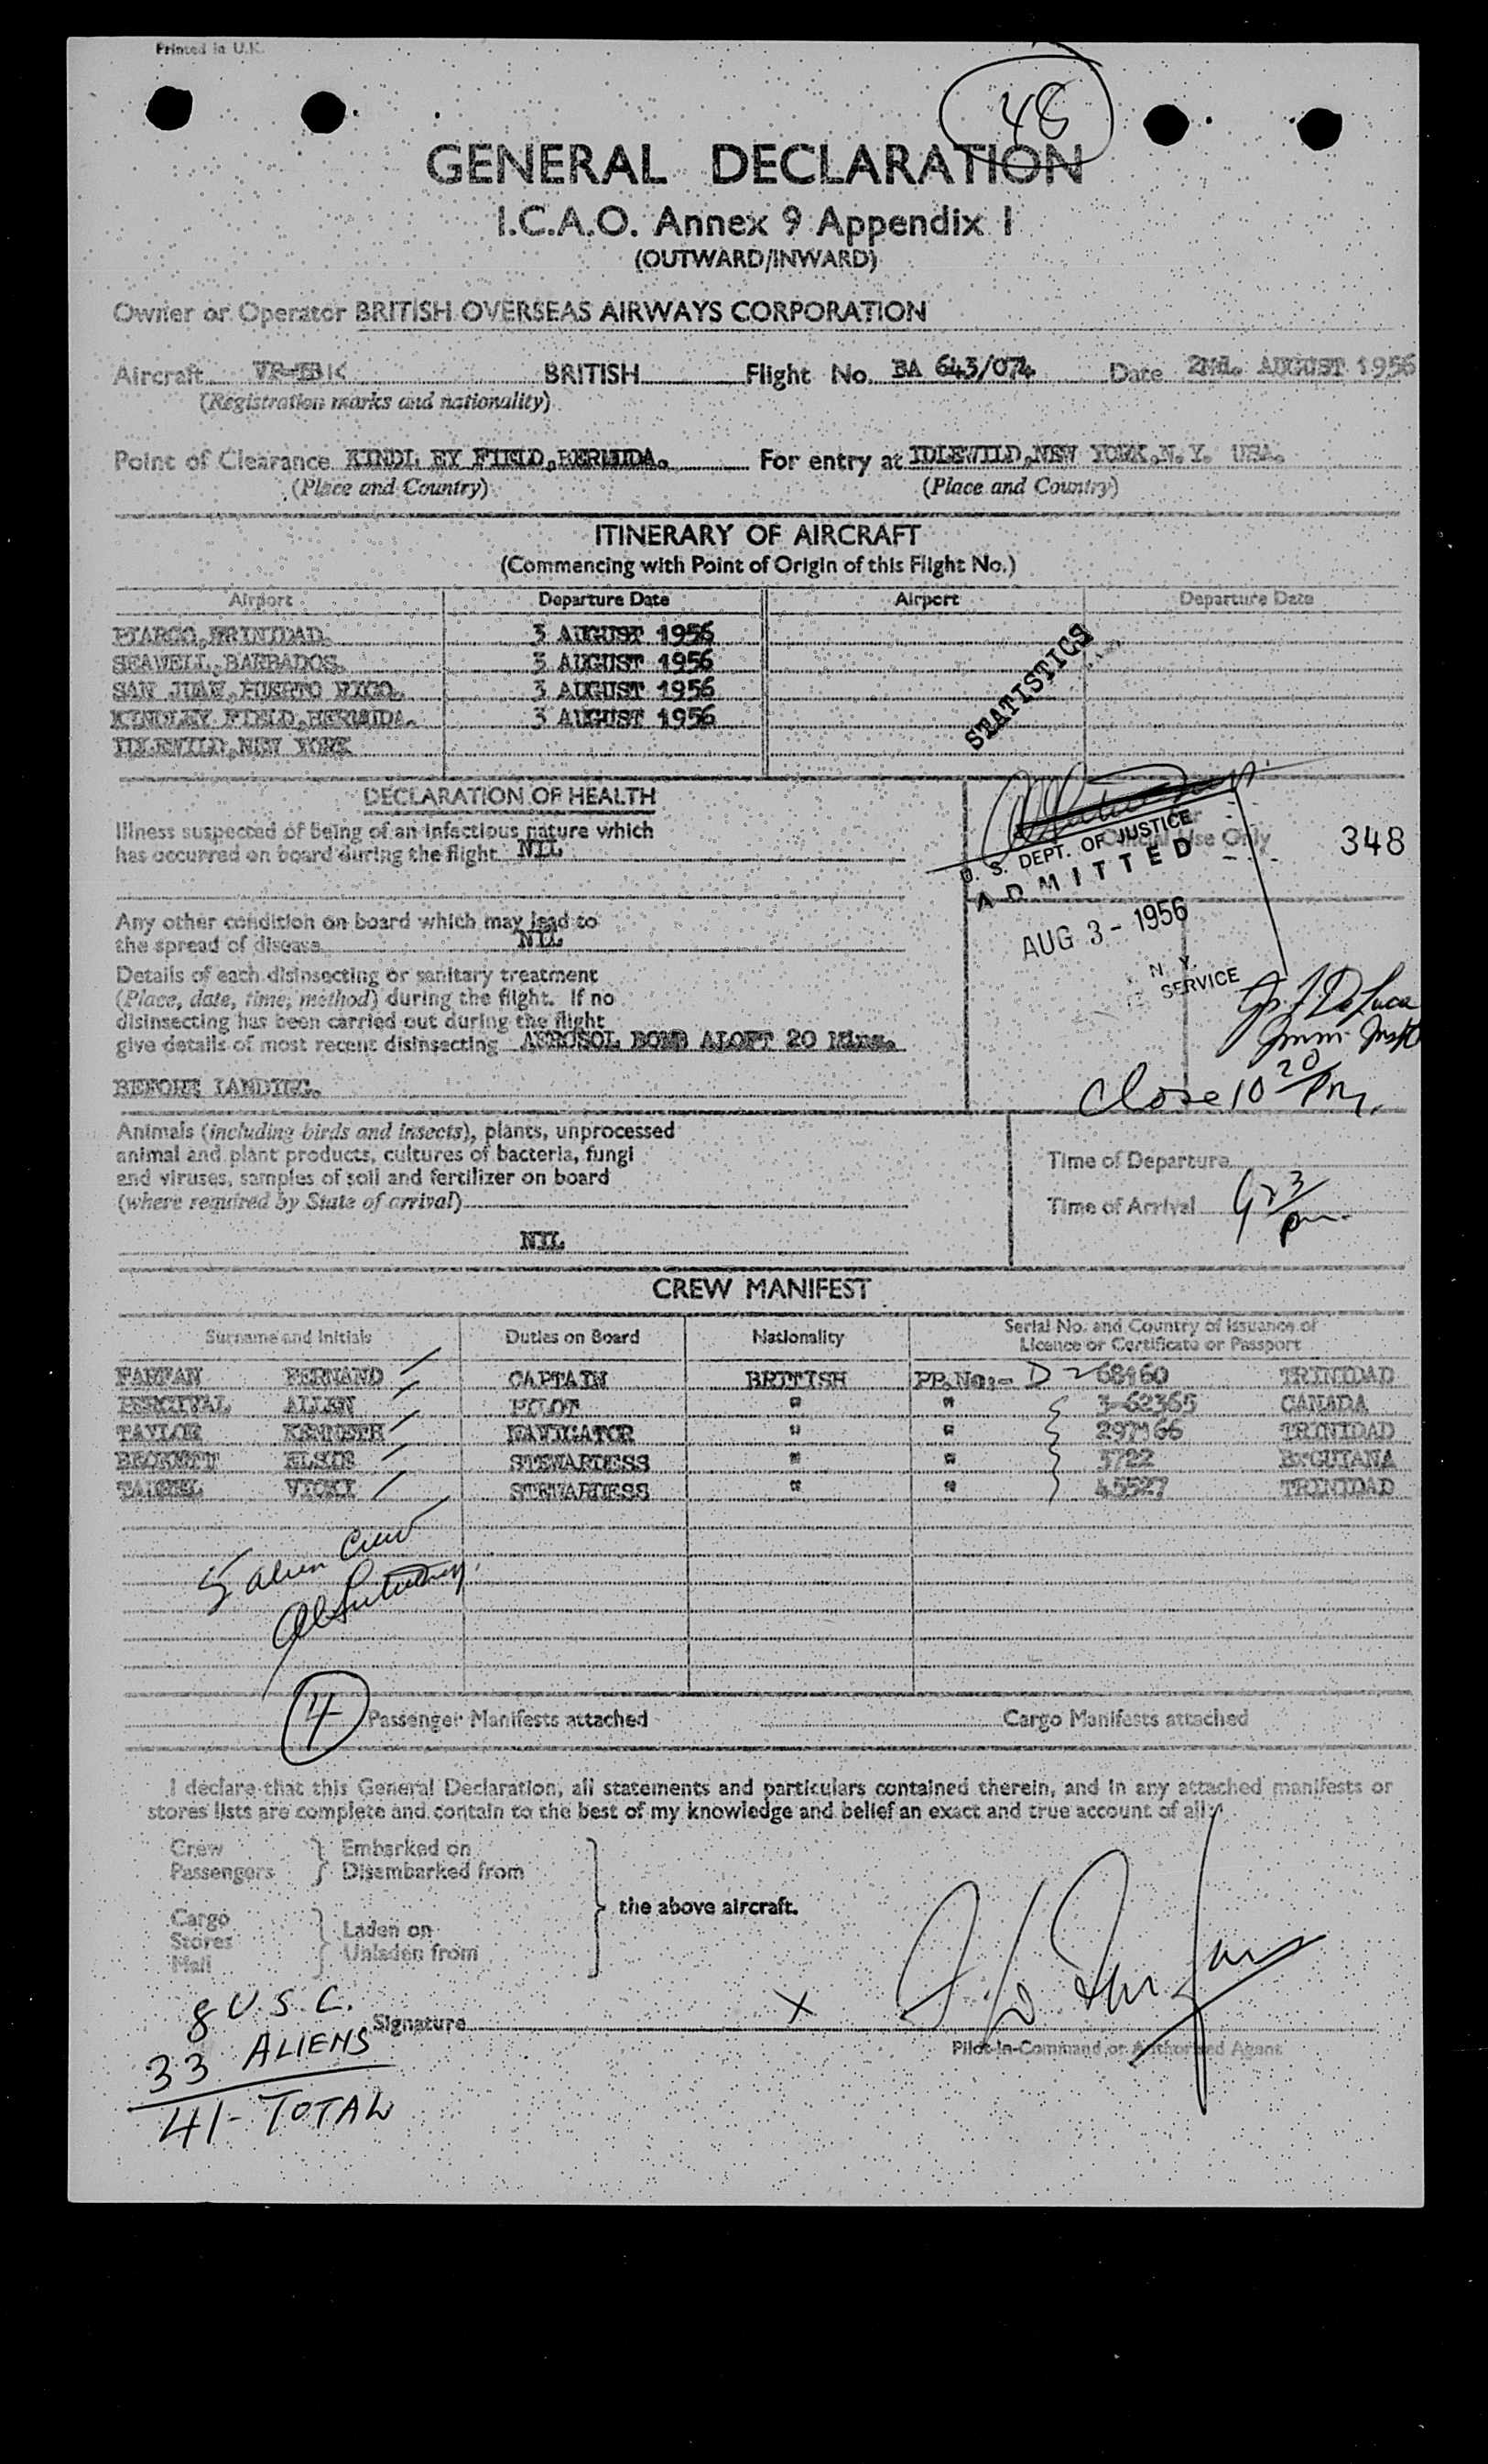 Printed in U.K.
48
GENERAL DECLARATION
I.C.A.O. Annex 9 Appendix I
(OUTWARD/INWARD)
Owner or Operator BRITISH OVERSEAS AIRWAYS CORPORATION
Aircraft BRITISH Flight No. BA 643/074 Date 2nd. AUGUST 1956
(Registration marks and nationality)
Point of Clearance KINDL EY FIELD,BERMUDA. For entry at IDLEWILD,NEW YORK,N.Y. USA.
(Place and Country) (Place and Country)
ITINERARY OF AIRCRAFT
(Commencing with Point of Origin of this Flight No.)
Airport Departure Date Airport Departure Date
PIARCO,TRINIDAD. 3 AUGUST 1956
SEAWELL,BARBADOS. 3 AUGUST 1956
SAN JUAN,PUERTO RICO. 3 AUGUST 1956
KINDLEY FIELD,BERMUDA. 3 AUGUST 1956
IDLEWILD,NEW YORK
STATISTICS
DECLARATION OF HEALTH
Illness suspected of being of an infectious nature which
has occurred on board during the flight NIL
Any other condition on board which may lead to
the spread of disease NIL
Details of each disinsecting or sanitary treatment
(Place, date, time, method) during the flight. If no
disinsecting has been carried out during the flight
give details of most recent disinsecting AEROSOL BOMB ALOFT 20 Mins.
BEFORE LANDING.
For
Official Use Only
348
U. S. DEPT. OF JUSTICE
ADMITTED
AUG 3 - 1956
N. Y.
SERVICE
De Luca
Imm. Inspt
Close 10 20/PM.
Animals (including birds and insects), plants, unprocessed
animal and plant products, cultures of bacteria, fungi
and viruses, samples of soil and fertilizer on board
(where required by State of arrival)
NIL
Time of Departure
Time of Arrival 923/pm
CREW MANIFEST
Surname and Initials Duties on Board Nationality Serial No. and Country of Issuance of
Licence or Certificate or Passport
FARFAN FERNAND CAPTAIN BRITISH PP.No:- D 268160 TRINIDAD
PERCIVAL ALLEN PILOT " " 3-62365 CANADA
TAYLOR KENNETH NAVIGATOR " " 297166 TRINIDAD
ELSIE STEWARDESS " " 3722 Br GUIANA
VICKI STEWARDESS " " 45527 TRINIDAD
5 alien crew
4 Passenger Manifests attached Cargo Manifests attached
I declare that this General Declaration, all statements and particulars contained therein, and in any attached manifests or
stores lists are complete and contain to the best of my knowledge and belief an exact and true account of all:
Crew } Embarked on
Passengers } Disembarked from
the above aircraft.
Cargo
Stores } Laden on
Mail } Unladen from
8 U.S.C.
33 ALIENS
41- TOTAL
Signature X
Pilot-in-Command or Authorised Agent